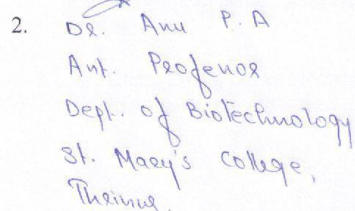 2. Dr. Anu P. A
Asst. Professor
Dept. of Biotechnology
St. Mary's College,
Thrissur.